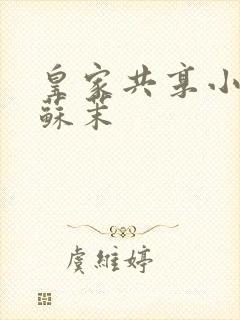 皇家共享小
蘇茉
虞維婷